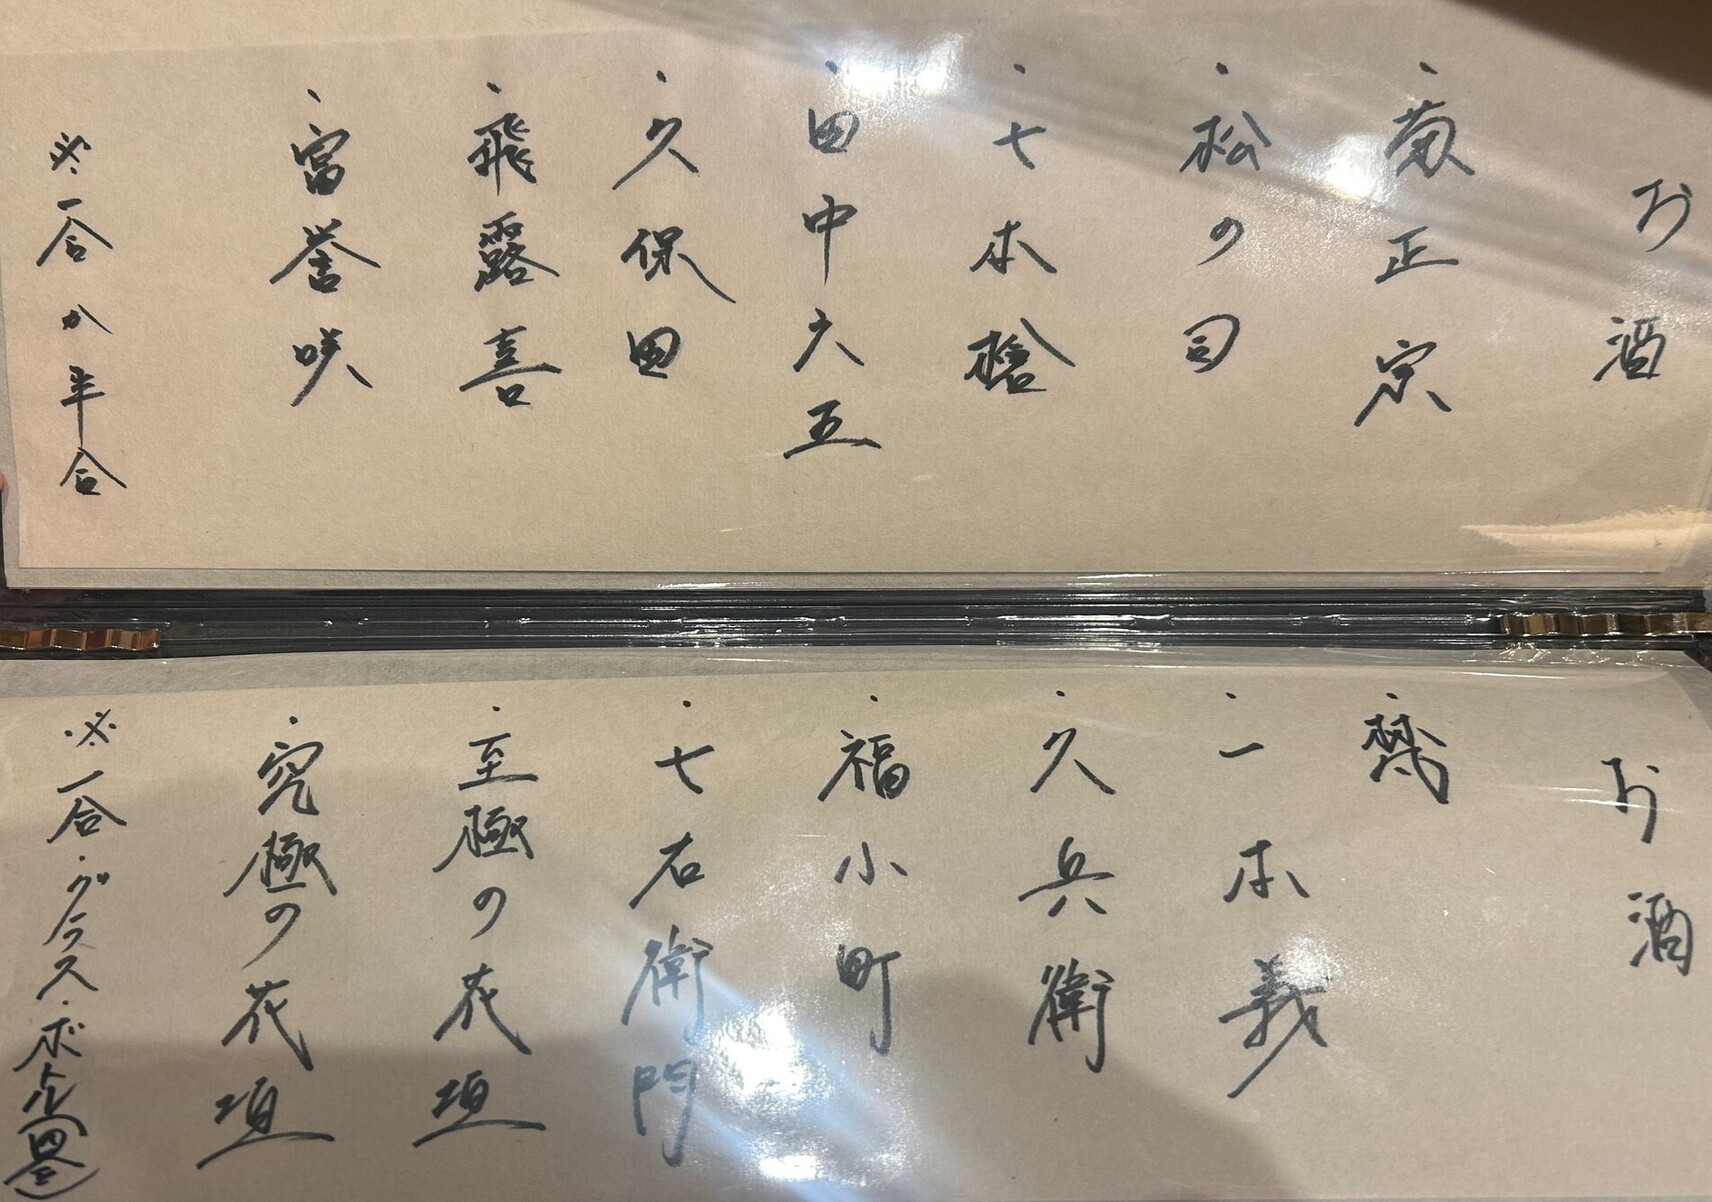 お酒
・菊正宗
・松の司
・七本槍
・田中六五
・久保田
・飛露喜
・富誉咲
※一合か半合
お酒
・梵
・一本義
・久兵衛
・福小町
・七右衛門
・至極の花垣
・究極の花垣
※一合・グラス・ボトル(四畳)